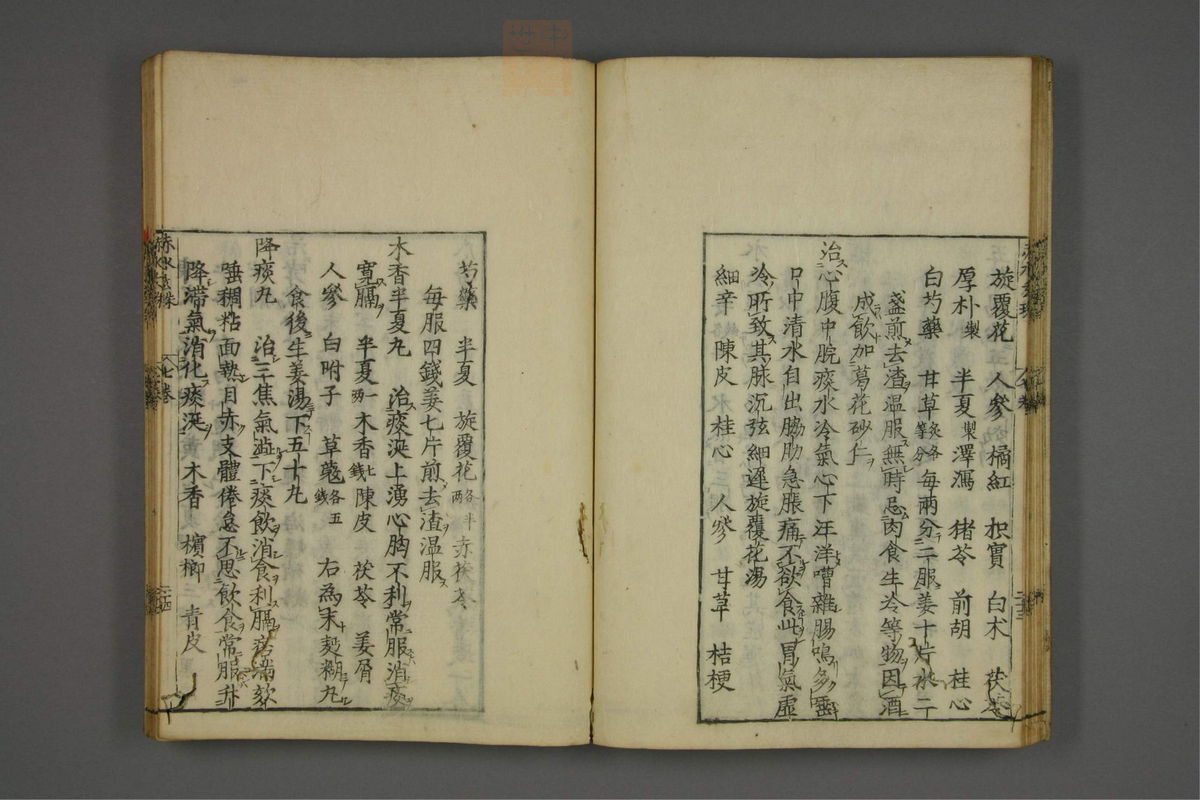 旋覆花 人參 橘紅 枳實 白朮 茯苓
厚朴製 半夏製 澤瀉 猪苓 前胡 桂心
白芍藥 甘草炙各等分 每兩分二服姜十片水二
盞煎去渣温服無時忌肉食生冷等物因酒
成飲加葛花砂仁
治心腹中脘痰水冷氣心下汪洋嘈雜腸鳴多
口中清水自出脇肋急脹痛不欲食此胃氣虛
冷所致其脉沉弦細遲旋覆花湯
細辛 陳皮 桂心 人參 甘草 桔梗
芍藥 半夏 旋覆花各半兩 赤茯苓
每服四錢姜七片煎去渣温服
木香半夏丸 治痰涎上湧心胸不利常服消痰
寬膈 半夏一兩 木香七錢 陳皮 茯苓 姜屑
人參 白附子 草蔻各五錢 右為末麪糊丸
食後生姜湯下五十丸
降痰丸 治三焦氣澁下痰飲消食利膈痞滿欬
唾稠粘面熱目赤支體倦怠不思飲食常服升
降滯氣消化痰涎 木香 檳榔 青皮
七卷
二十四